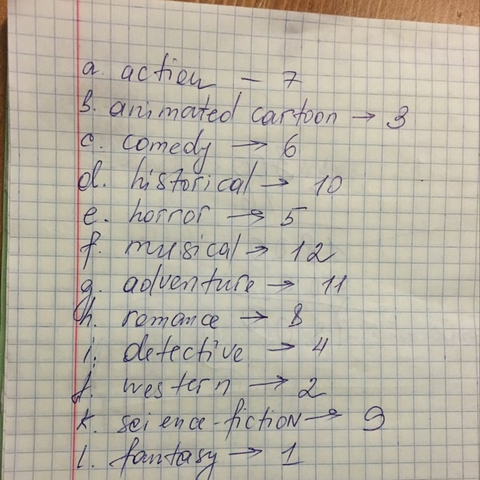 a. action – 7
b. animated cartoon → 3
c. comedy → 6
d. historical → 10
e. horror → 5
f. musical → 12
g. adventure → 11
h. romance → 8
i. detective → 4
j. western → 2
k. science-fiction → 9
l. fantasy → 1